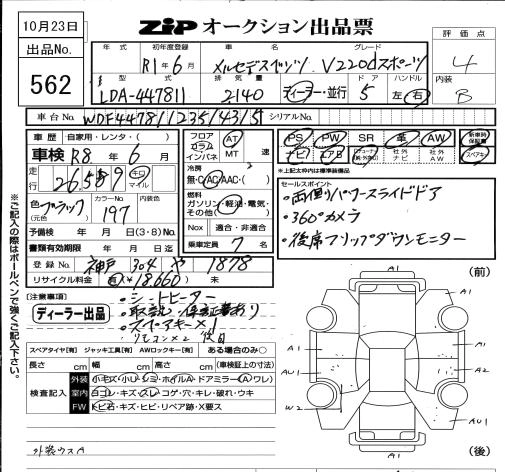 10月23日
ZiP オークション出品票
評価点
4
内装
B
出品No.
562
年式 初年度登録 車名 グレード
R1年6月 メルセデスベンツ V220dスポーツ
型式 排気量 ドア ハンドル
LDA-447811 2140 ディーラー・並行 5 左・右
車台No. WDF44781123514315 シリアルNo.
車歴 自家用・レンタ・( )
車検 R8年6月
走行 26,589 キロ マイル
色 ブラック (元色) カラーNo. 197 内装色
予備検 年 月 日(3・8)No.
書類有効期限 年 月 日
登録No. 神戸 304 や 1878
リサイクル料金 有(¥18,660) 未
フロア コラム インパネ AT MT 速
冷房 無・C・AC・AAC・( )
燃料 ガソリン・軽油・電気・その他( )
Nox 適合・非適合
乗車定員 7名
PS PW SR 革 AW 新車時保証書
ナビ エアB 社外ナビ 社外AW スペアキー
※上記太枠内は標準装備品
セールスポイント
・両側パワースライドドア
・360°カメラ
・後席フリップダウンモニター
[注意事項]
ディーラー出品
・シートヒーター
・取説・保証書あり
・スペアキー×1
リモコン×2
スペアタイヤ[有] ジャッキ工具[有] AWロックキー[有] ある場合のみ○
長さ cm 幅 cm 高さ cm (車検証上の寸法)
検査記入
外装 小キズ・小U・シミ・ホイルA・ドアミラー(A・ワレ)
室内 ヨゴレ・キズ・スレ・コゲ・穴・キレ・破れ・ウキ
FW トビ石・キズ・ヒビ・リペア跡・X要ス
外装ウスA
※ご記入の際はボールペンで強くご記入下さい。
(前)
A1
A1
A1
A2
W2
AU1
AU1
A1
(後)